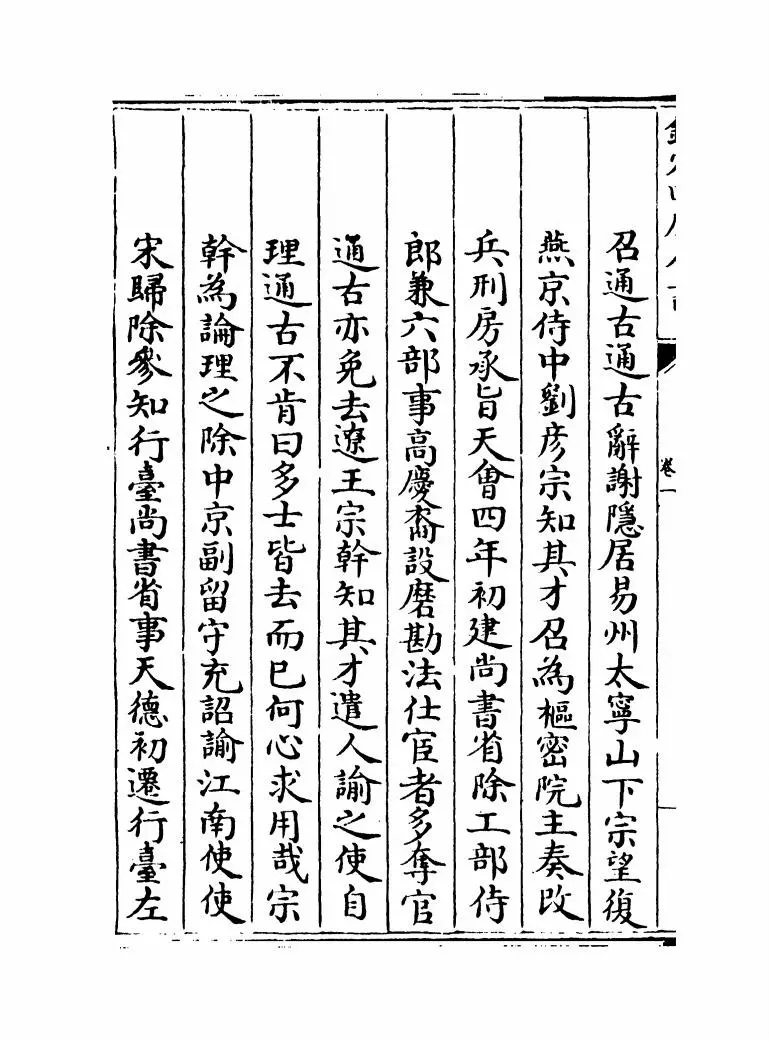 召通古通古辭謝隱居易州太寧山下宗望復
燕京侍中劉彦宗知其才召為樞密院主奏改
兵刑房承旨天會四年初建尚書省除工部侍
郎兼六部事高慶裔設磨勘法仕宦者多奪官
通古亦免去遼王宗幹知其才遣人諭之使自
理通古不肯曰多士皆去而已何心求用哉宗
幹為論理之除中京副留守充詔諭江南使使
宋歸除參知行臺尚書省事天德初遷行臺左
卷一